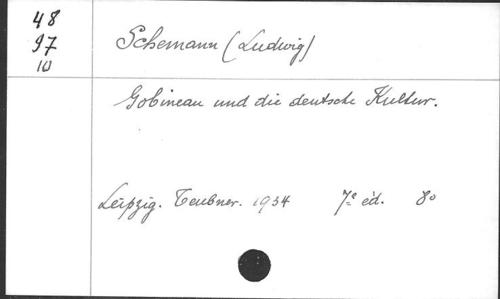 48
97
10
Schemann (Ludwig)
Gobineau und die deutsche Kultur.
Leipzig. Teubner. 1934 7e éd. 8o